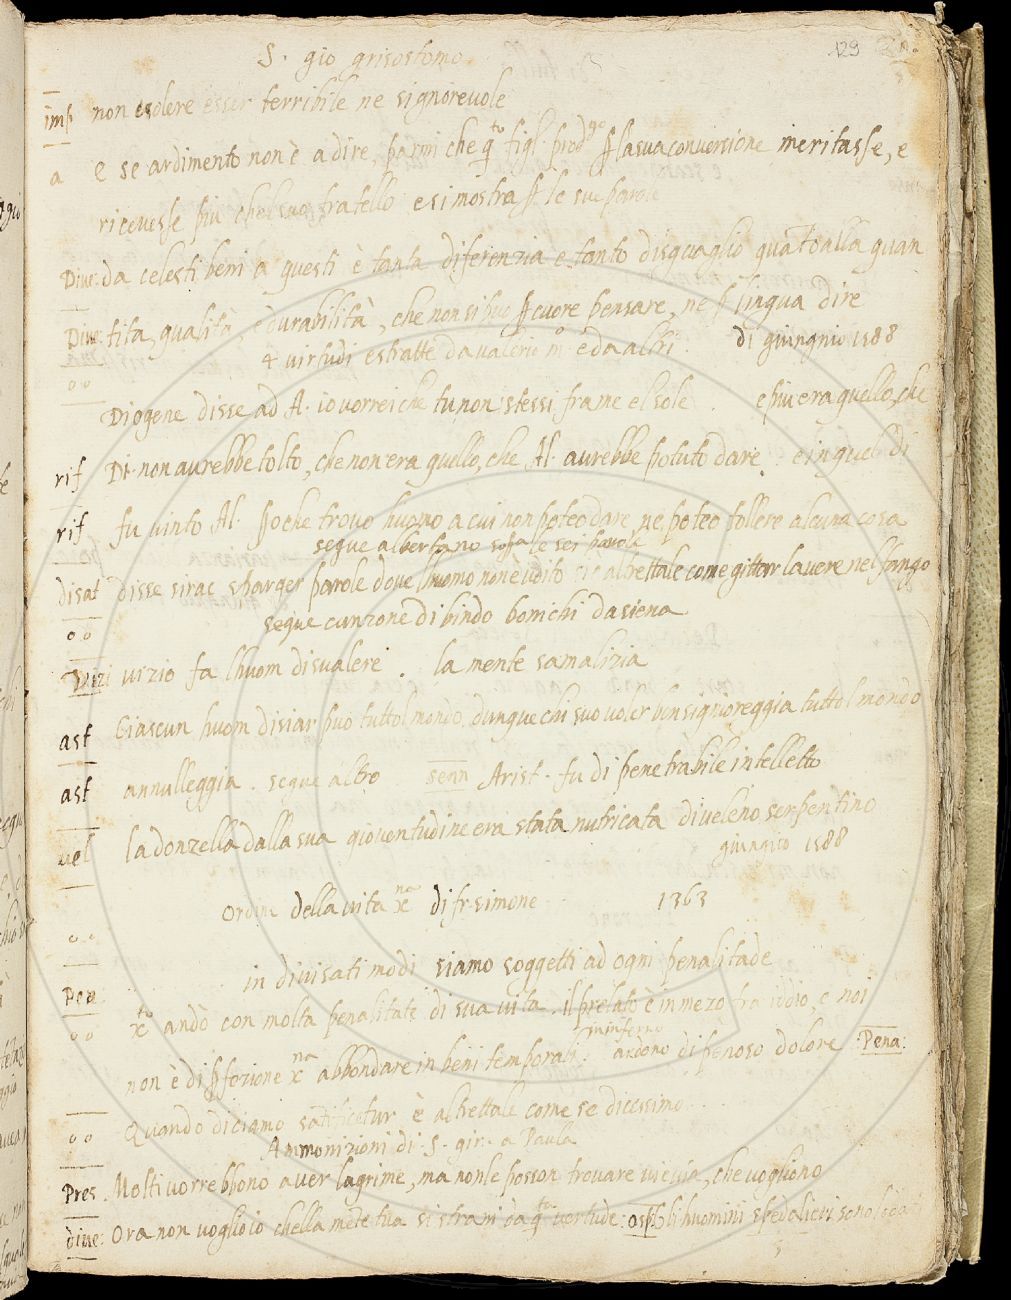 129
S. gio grisostomo
imp non volere esser terribile ne signorevole
a e se ardimento non è a dire, parmi che q.to figl. prod.go p la sua conversione meritasse, e
ricevesse piu chel suo fratello e si mostra p le sue parole
Dive: da celesti beni a questi è tanta diferenzia e tanto disguaglio quãto alla quan
Dive: tita, qualità, e durabilità, che non si puo p cuore pensare, ne p lingua dire
4 virtudi estratte da valerio m.o e da altri. di giungnio 1588
Diogene disse ad A. io vorrei che tu non stessi fra me el sole. e piu era quello, che
rif Di non avrebbe tolto, che non era quello, che Al. avrebbe potuto dare. e in quel di
rif fu vinto Al. po che trovo huomo a cui non poteo dare, ne poteo tollere alcuna cosa
segue albertano sopa le sei parole
disat disse sirac sparger parole dove lhuomo non è udito è altrettale come gittar lavere nel fango
segue canzone di bindo bonichi da siena
Vizi vizio fa lhuom disvalere. la mente sa malizia
ast Ciascun huom disiar può tuttol mondo, dunque chi suo voler ben signoreggia tuttol mondo
ast annulleggia. segue altro senn Arist. fu di penetrabile intelletto
vel la donzella dalla sua gioventudine era stata nutricata di veleno serpentino
giungnio 1588
Ordin della vita xna di fr. simone 1363
in divisati modi siamo soggetti ad ogni penalitade
Pen xto andò con molta penalitate di sua vita. il prelato è in mezo fra iddio, e noi
in inferno
non è di pfezione xna abbondare in beni temporali. ardono di penoso dolore Pena:
Quando diciamo satificetur è altrettale come se dicessimo
Ammonizioni di S. gir. a Paula
Pres. Molti vorrebbono aver lagrime, ma non le posson trovare vievia, che vogliono
dive: Ora non voglio io chella mẽte tua si strani da q.ta vertude: ospit li huomini spedalieri sono